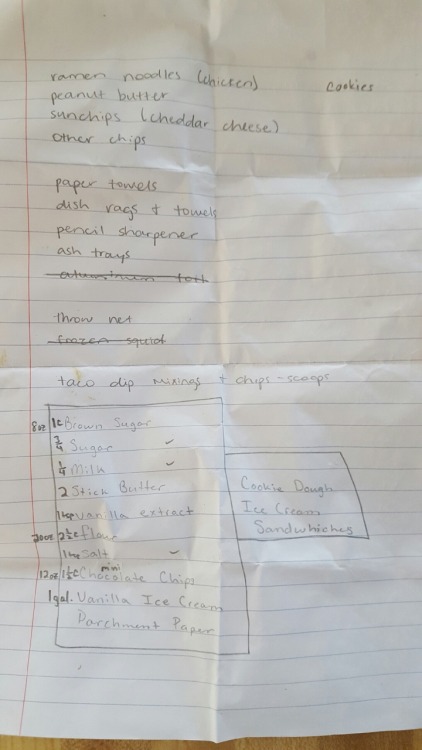 ramen noodles (chicken) cookies
peanut butter
sunchips (cheddar cheese)
other chips
paper towels
dish rags + towels
pencil sharpener
ash trays
aluminum foil
throw net
frozen squid
taco dip mixings + chips - scoops
8oz 1c Brown Sugar
3/4 Sugar ✓
1/4 Milk ✓
2 Stick Butter
1tsp vanilla extract
20oz 2 1/2c flour
1tsp salt ✓
12oz 1 1/2c mini Chocolate Chips
1gal. Vanilla Ice Cream
Parchment Paper
Cookie Dough
Ice Cream
Sandwhiches